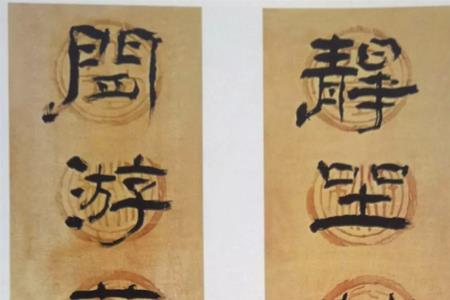 靜坐
閒游